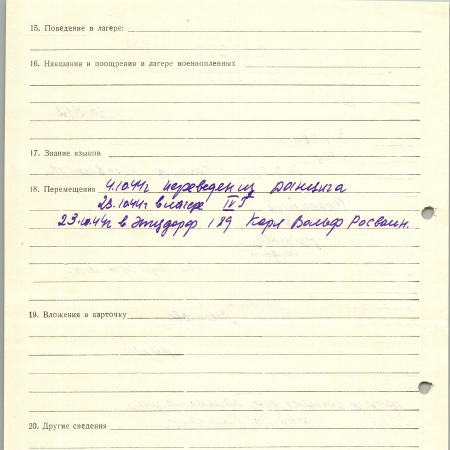 15. Поведение в лагере:
16. Наказания и поощрения в лагере военнопленных
17. Знание языков
18. Перемещения 4.10.44г переведен из
23.10.44г в лагерь
23.10.44г в 189 Карл Вольф
19. Вложения в карточку
20. Другие сведения